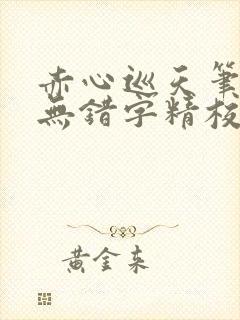 赤心巡天筆
無錯字精校
黃金來